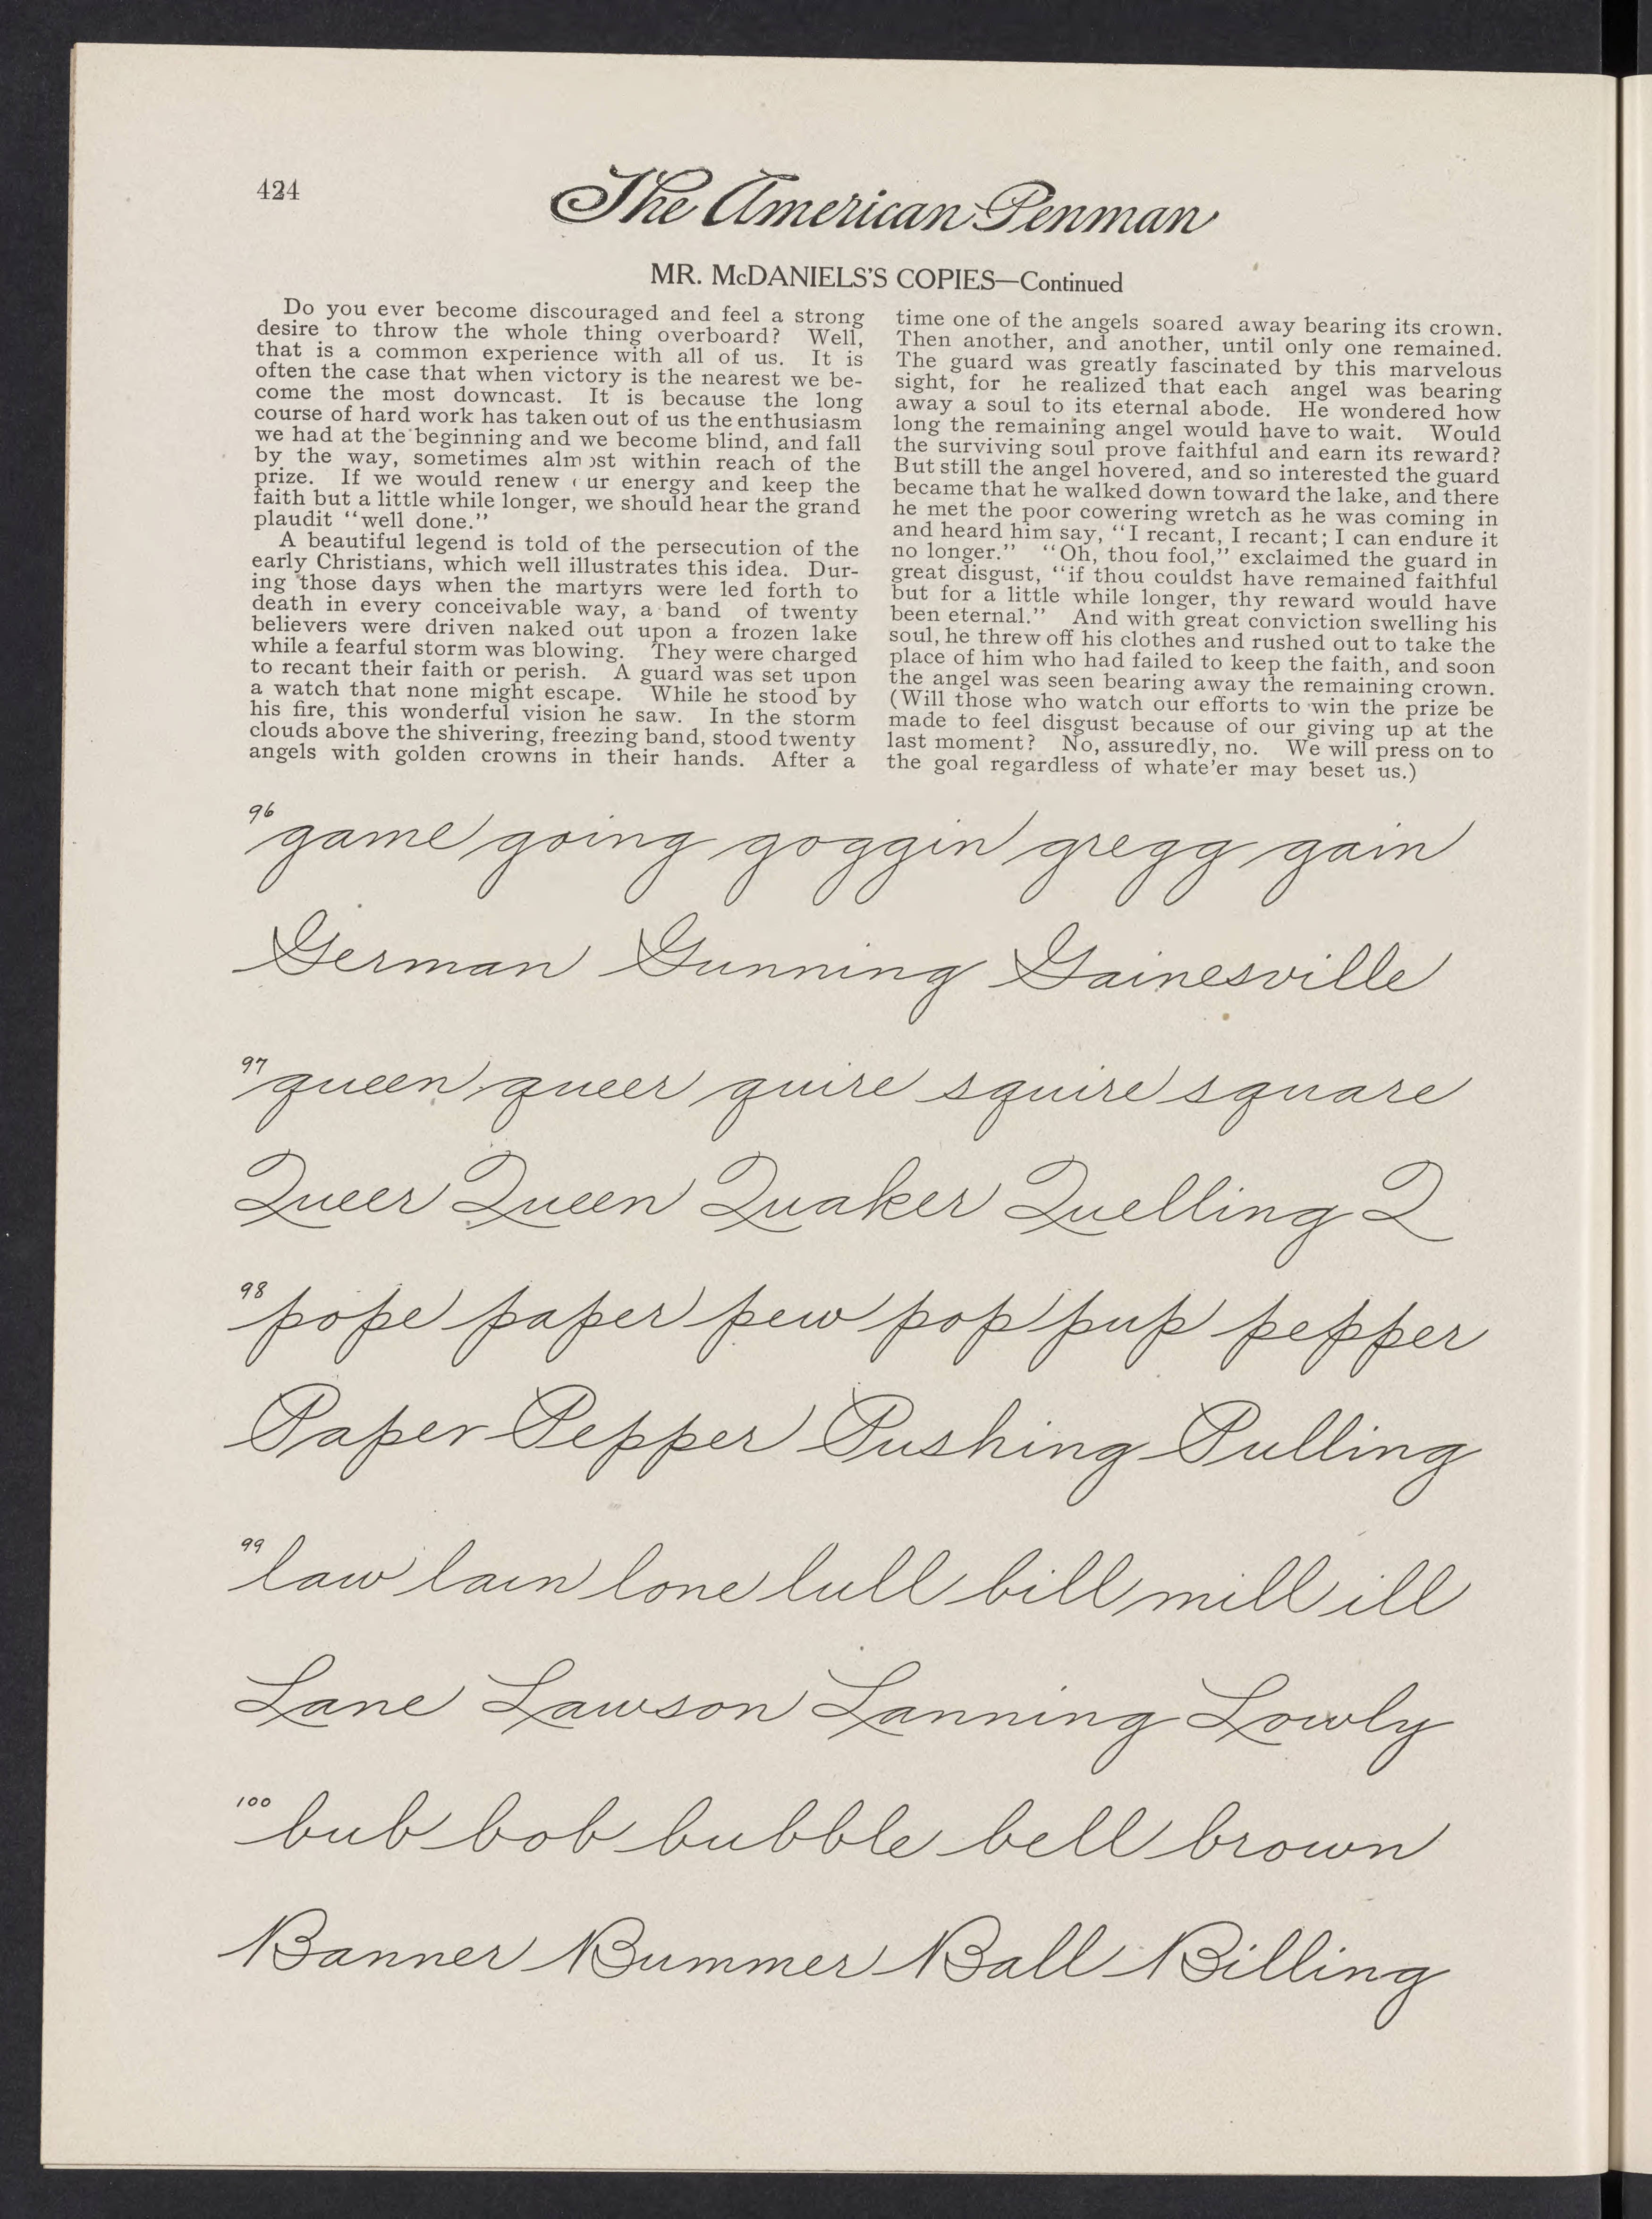 424
The American Penman
MR. McDANIELS'S COPIES—Continued
Do you ever become discouraged and feel a strong
desire to throw the whole thing overboard? Well,
that is a common experience with all of us. It is
often the case that when victory is the nearest we be-
come the most downcast. It is because the long
course of hard work has taken out of us the enthusiasm
we had at the beginning and we become blind, and fall
by the way, sometimes almost within reach of the
prize. If we would renew our energy and keep the
faith but a little while longer, we should hear the grand
plaudit "well done."
A beautiful legend is told of the persecution of the
early Christians, which well illustrates this idea. Dur-
ing those days when the martyrs were led forth to
death in every conceivable way, a band of twenty
believers were driven naked out upon a frozen lake
while a fearful storm was blowing. They were charged
to recant their faith or perish. A guard was set upon
a watch that none might escape. While he stood by
his fire, this wonderful vision he saw. In the storm
clouds above the shivering, freezing band, stood twenty
angels with golden crowns in their hands. After a
time one of the angels soared away bearing its crown.
Then another, and another, until only one remained.
The guard was greatly fascinated by this marvelous
sight, for he realized that each angel was bearing
away a soul to its eternal abode. He wondered how
long the remaining angel would have to wait. Would
the surviving soul prove faithful and earn its reward?
But still the angel hovered, and so interested the guard
became that he walked down toward the lake, and there
he met the poor cowering wretch as he was coming in
and heard him say, "I recant, I recant; I can endure it
no longer." "Oh, thou fool," exclaimed the guard in
great disgust, "if thou couldst have remained faithful
but for a little while longer, thy reward would have
been eternal." And with great conviction swelling his
soul, he threw off his clothes and rushed out to take the
place of him who had failed to keep the faith, and soon
the angel was seen bearing away the remaining crown.
(Will those who watch our efforts to win the prize be
made to feel disgust because of our giving up at the
last moment? No, assuredly, no. We will press on to
the goal regardless of whate'er may beset us.)
96 game going goggin gregg gain
German Gunning Gainesville
97 queen queer quire squire square
Queer Queen Quaker Quelling Q
98 pope paper pew pop pup pepper
Paper Pepper Pushing Pulling
99 law lain lone lull bill mill ill
Lane Lawson Lanning Lowly
100 bub bob bubble bell brown
Banner Bummer Ball Billing